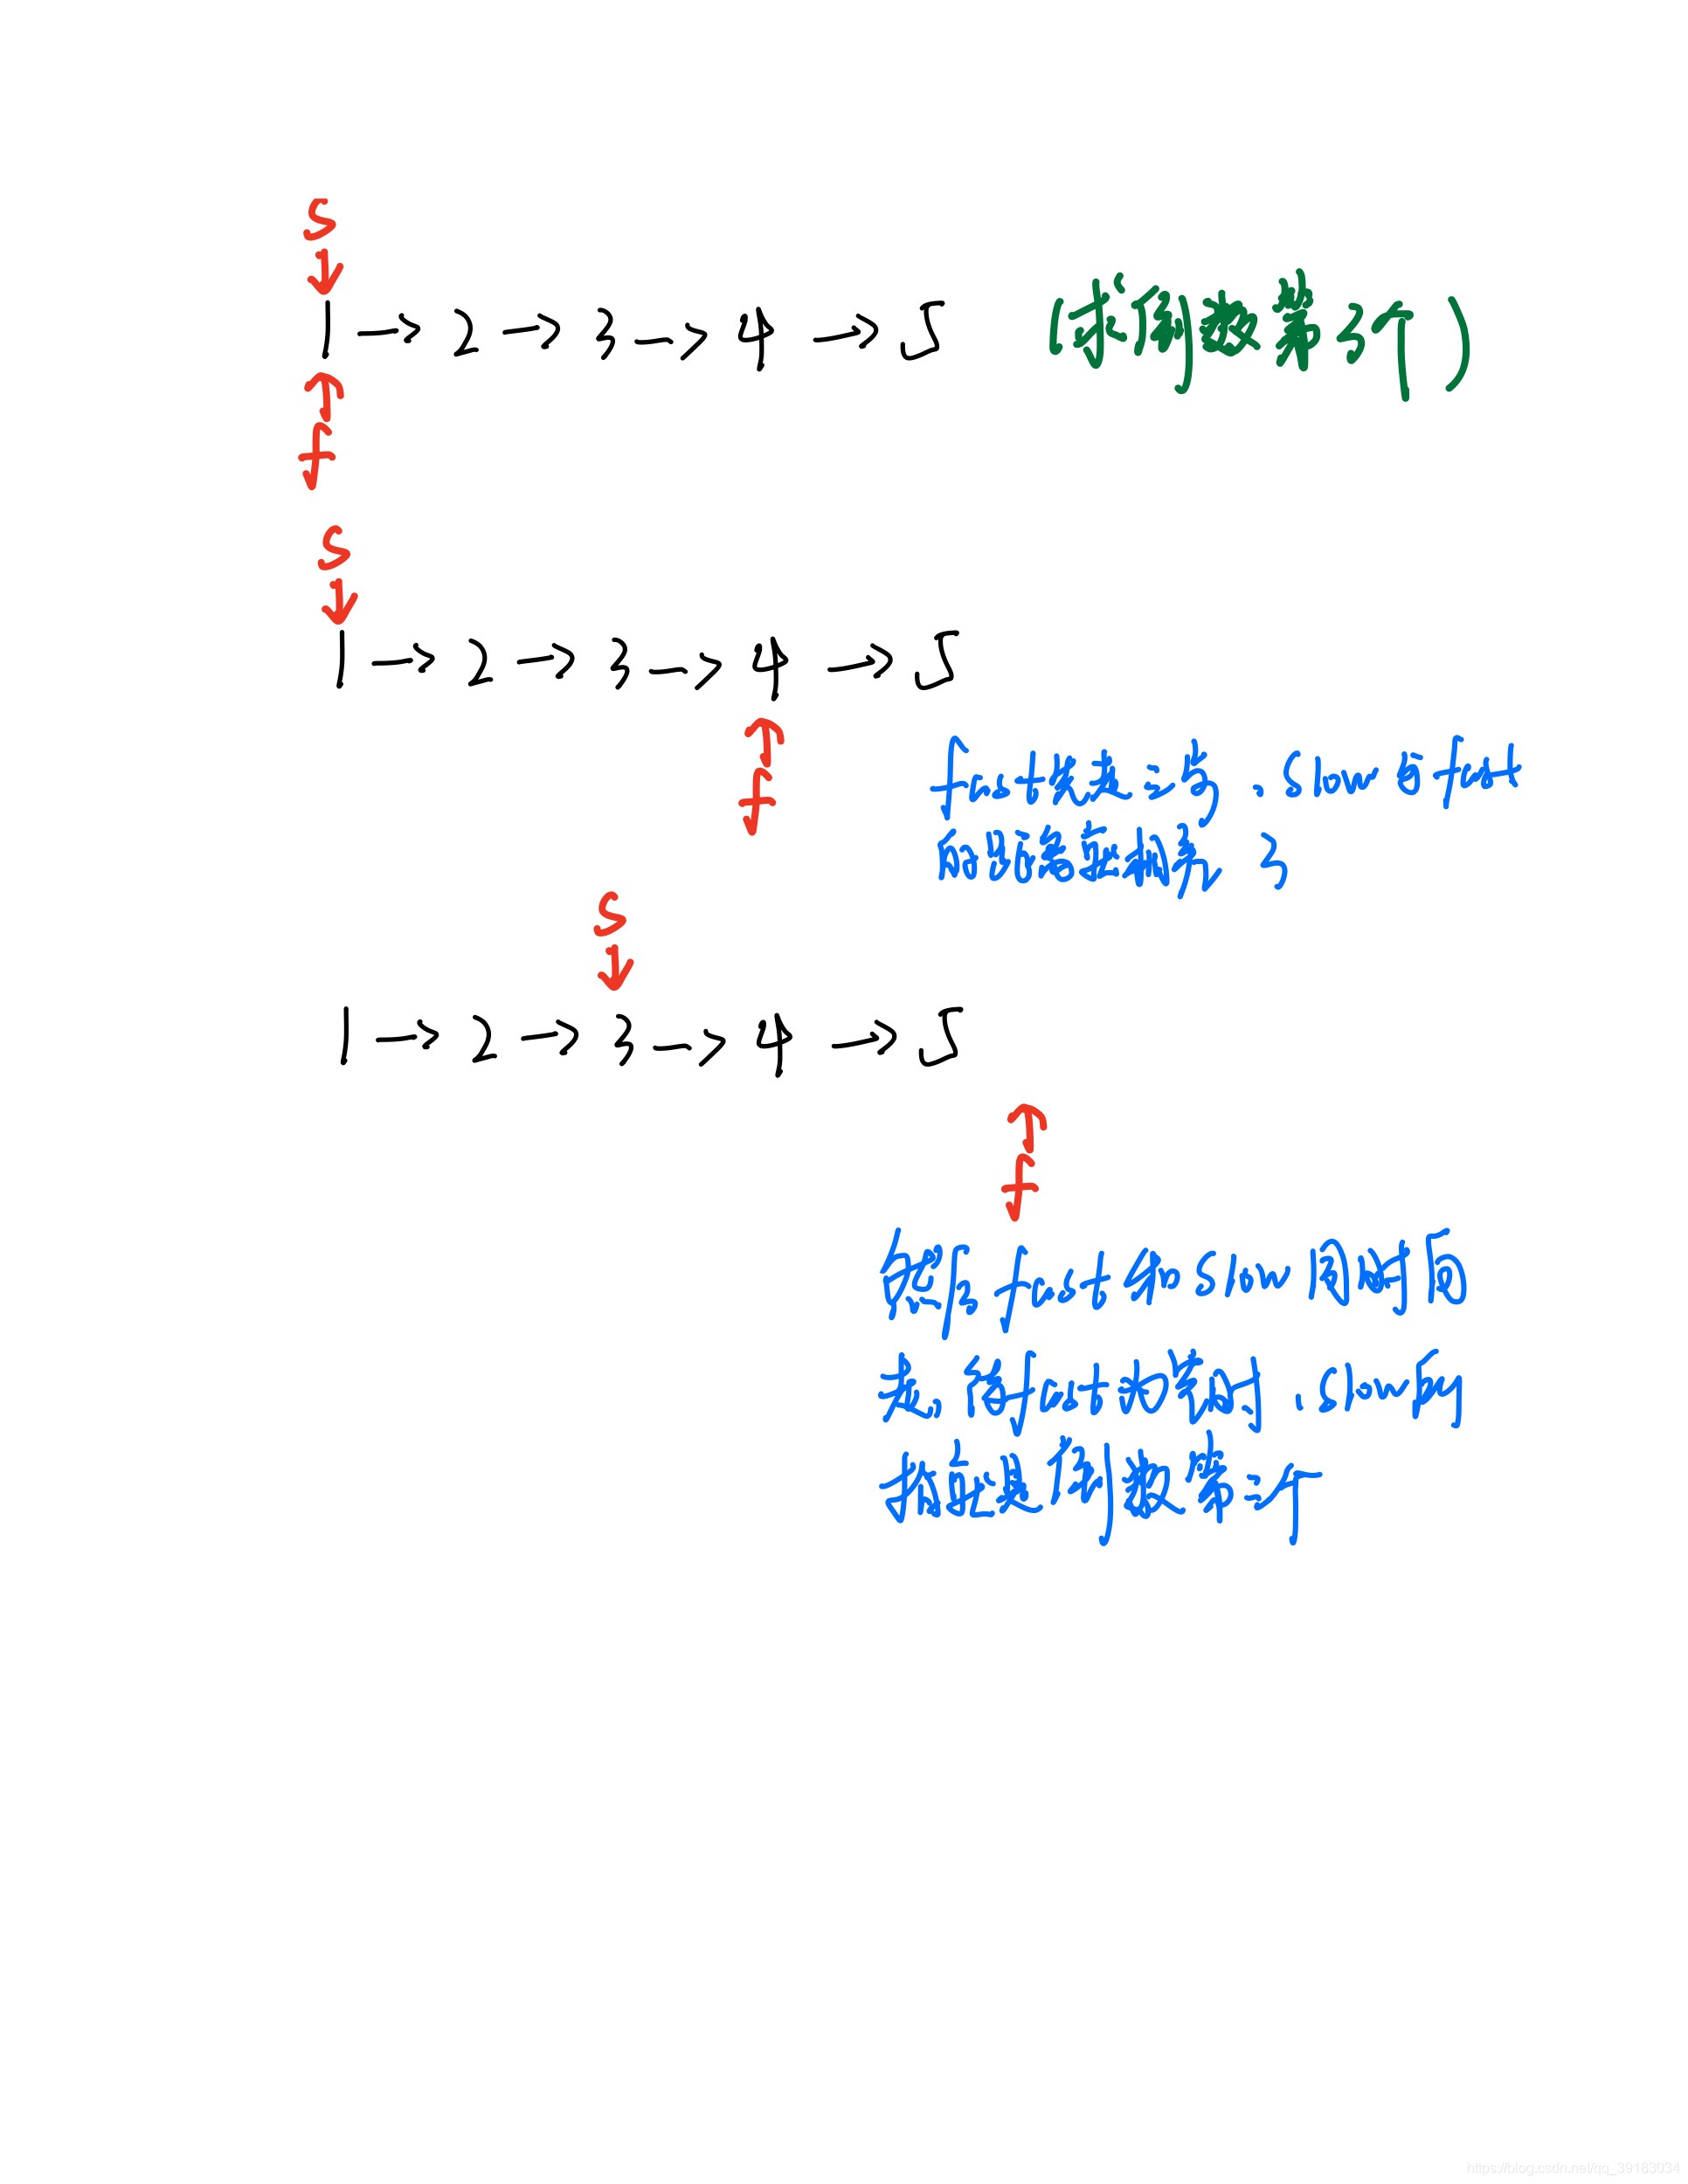 s
1 → 2 → 3 → 4 → 5 (求倒数第3个)
f
s
1 → 2 → 3 → 4 → 5
f
fast先走三步,slow与fast
间的距离相差3
s
1 → 2 → 3 → 4 → 5
f
然后fast和slow同时后
走,等fast为空时,slow的
指向就是倒数第三个
https://blog.csdn.net/qq_39183034